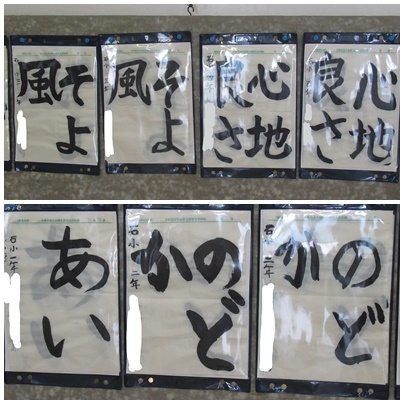 そよ
風
そよ
風
心地
良さ
心地
良さ
あい
石小 一年
のど
か
石小 二年
のど
か
石小 二年